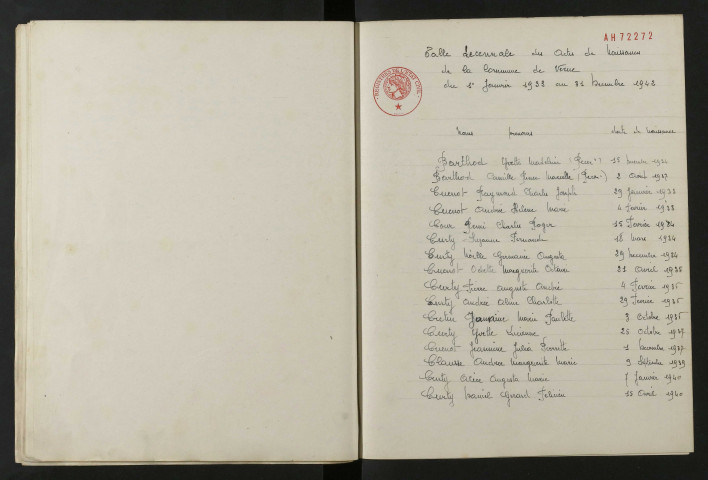 AH 72272
Table Decennale des Actes de Naissances
de la Commune de Verne
du 1er Janvier 1933 au 31 Decembre 1942
Noms prenoms date de naissance
Barthod Yvette Madeleine 15 1934
Barthod Camille Marcelle 2 Avril 1937
Cuenot Raymond Charles Joseph 29 Janvier 1933
Cuenot Andrée Hélène Marie 4 Fevrier 1933
Cour Remi Charles Roger 15 Fevrier 1934
Curty Suzanne Fernande 18 Mars 1934
Curty Noëlle Germaine Augusta 29 Decembre 1934
Cuenot Odette Marguerite 21 Avril 1935
Curty Pierre Auguste André 4 Fevrier 1935
Curty Andrée Celine Charlotte 29 1935
Cretin Germaine Marie Paulette 3 Octobre 1935
Curty Yvette Lucienne 25 Octobre 1937
Cuenot Jeannine Julia 1 Decembre 1937
Clausse Andrée Marguerite Marie 9 Septembre 1939
Curty Augusta Marie 7 Janvier 1940
Curty Daniel Gérard 15 Avril 1940